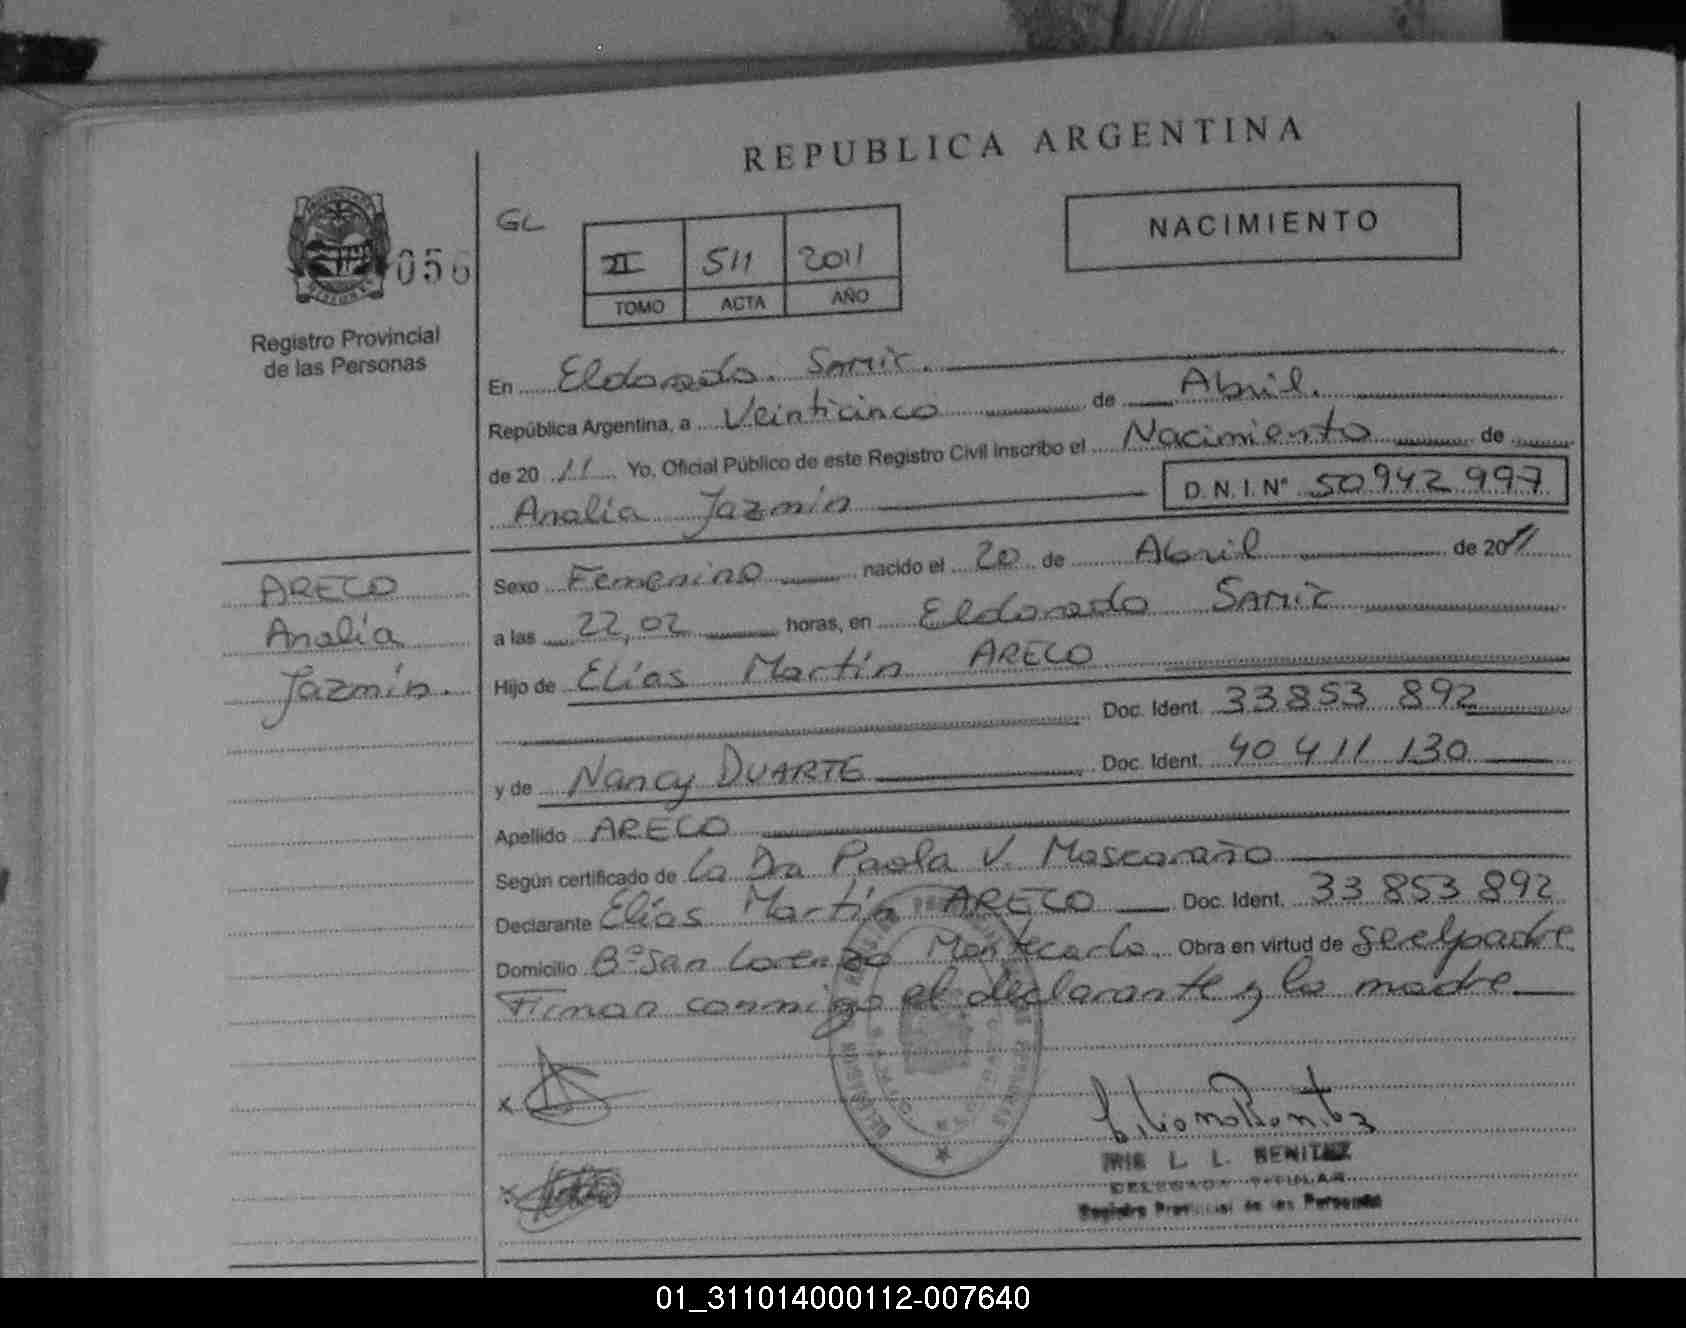 REPUBLICA ARGENTINA
NACIMIENTO
GL
056
II 511 2011
TOMO ACTA AÑO
Registro Provincial
de las Personas
En Eldorado. SAMIC.
República Argentina, a Veinticinco de Abril.
de 20 11 Yo, Oficial Público de este Registro Civil Inscribo el Nacimiento de
Analía Jazmín D. N. I. Nº 50942997
Sexo Femenino nacido el 20 de Abril de 2011
a las 22,02 horas, en Eldorado SAMIC
Hijo de Elías Martín ARECO
Doc. Ident. 33853 892
y de Nancy DUARTE Doc. Ident. 40 411 130
Apellido ARECO
Según certificado de la Dra Paola V.
Declarante Elías Martín ARECO Doc. Ident. 33 853 892
Domicilio Bº San Lorenzo Montecarlo. Obra en virtud de ser el padre
Firman conmigo el declarante y la madre
ARECO
Analía
Jazmín.
x
x
L. L. BENITEZ
DELEGADA TITULAR
Registro Provincial de las Personas
01_311014000112-007640